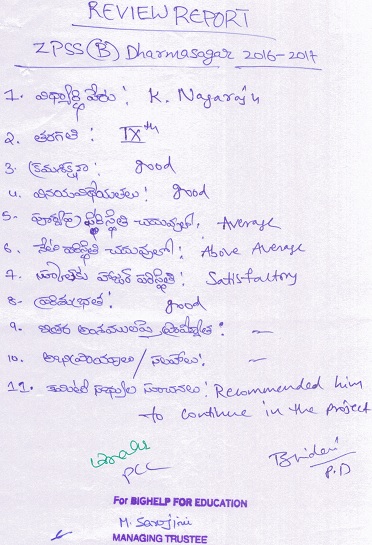 REVIEW REPORT
ZPSS (B) Dharmasagar 2016-2017
1. విద్యార్థి పేరు : K. Nagaraju
2. తరగతి : IXth
3. క్రమశిక్షణ : good
4. వినయవిధేయతలు : good
5. పూర్వపు స్థితి చదువులో, Average
6. నేటి పరిస్థితి చదువులో : Above Average
7. హాజరు పరిస్థితి : Satisfactory
8. పరిశుభ్రత : good
9. ఇతర అంశములపై : —
10. అభిప్రాయాలు / సలహాలు : —
11. కమిటీ సభ్యుల సూచనలు : Recommended him
to continue in the project
PCC
P.D
For BIGHELP FOR EDUCATION
M. Sarojini
MANAGING TRUSTEE